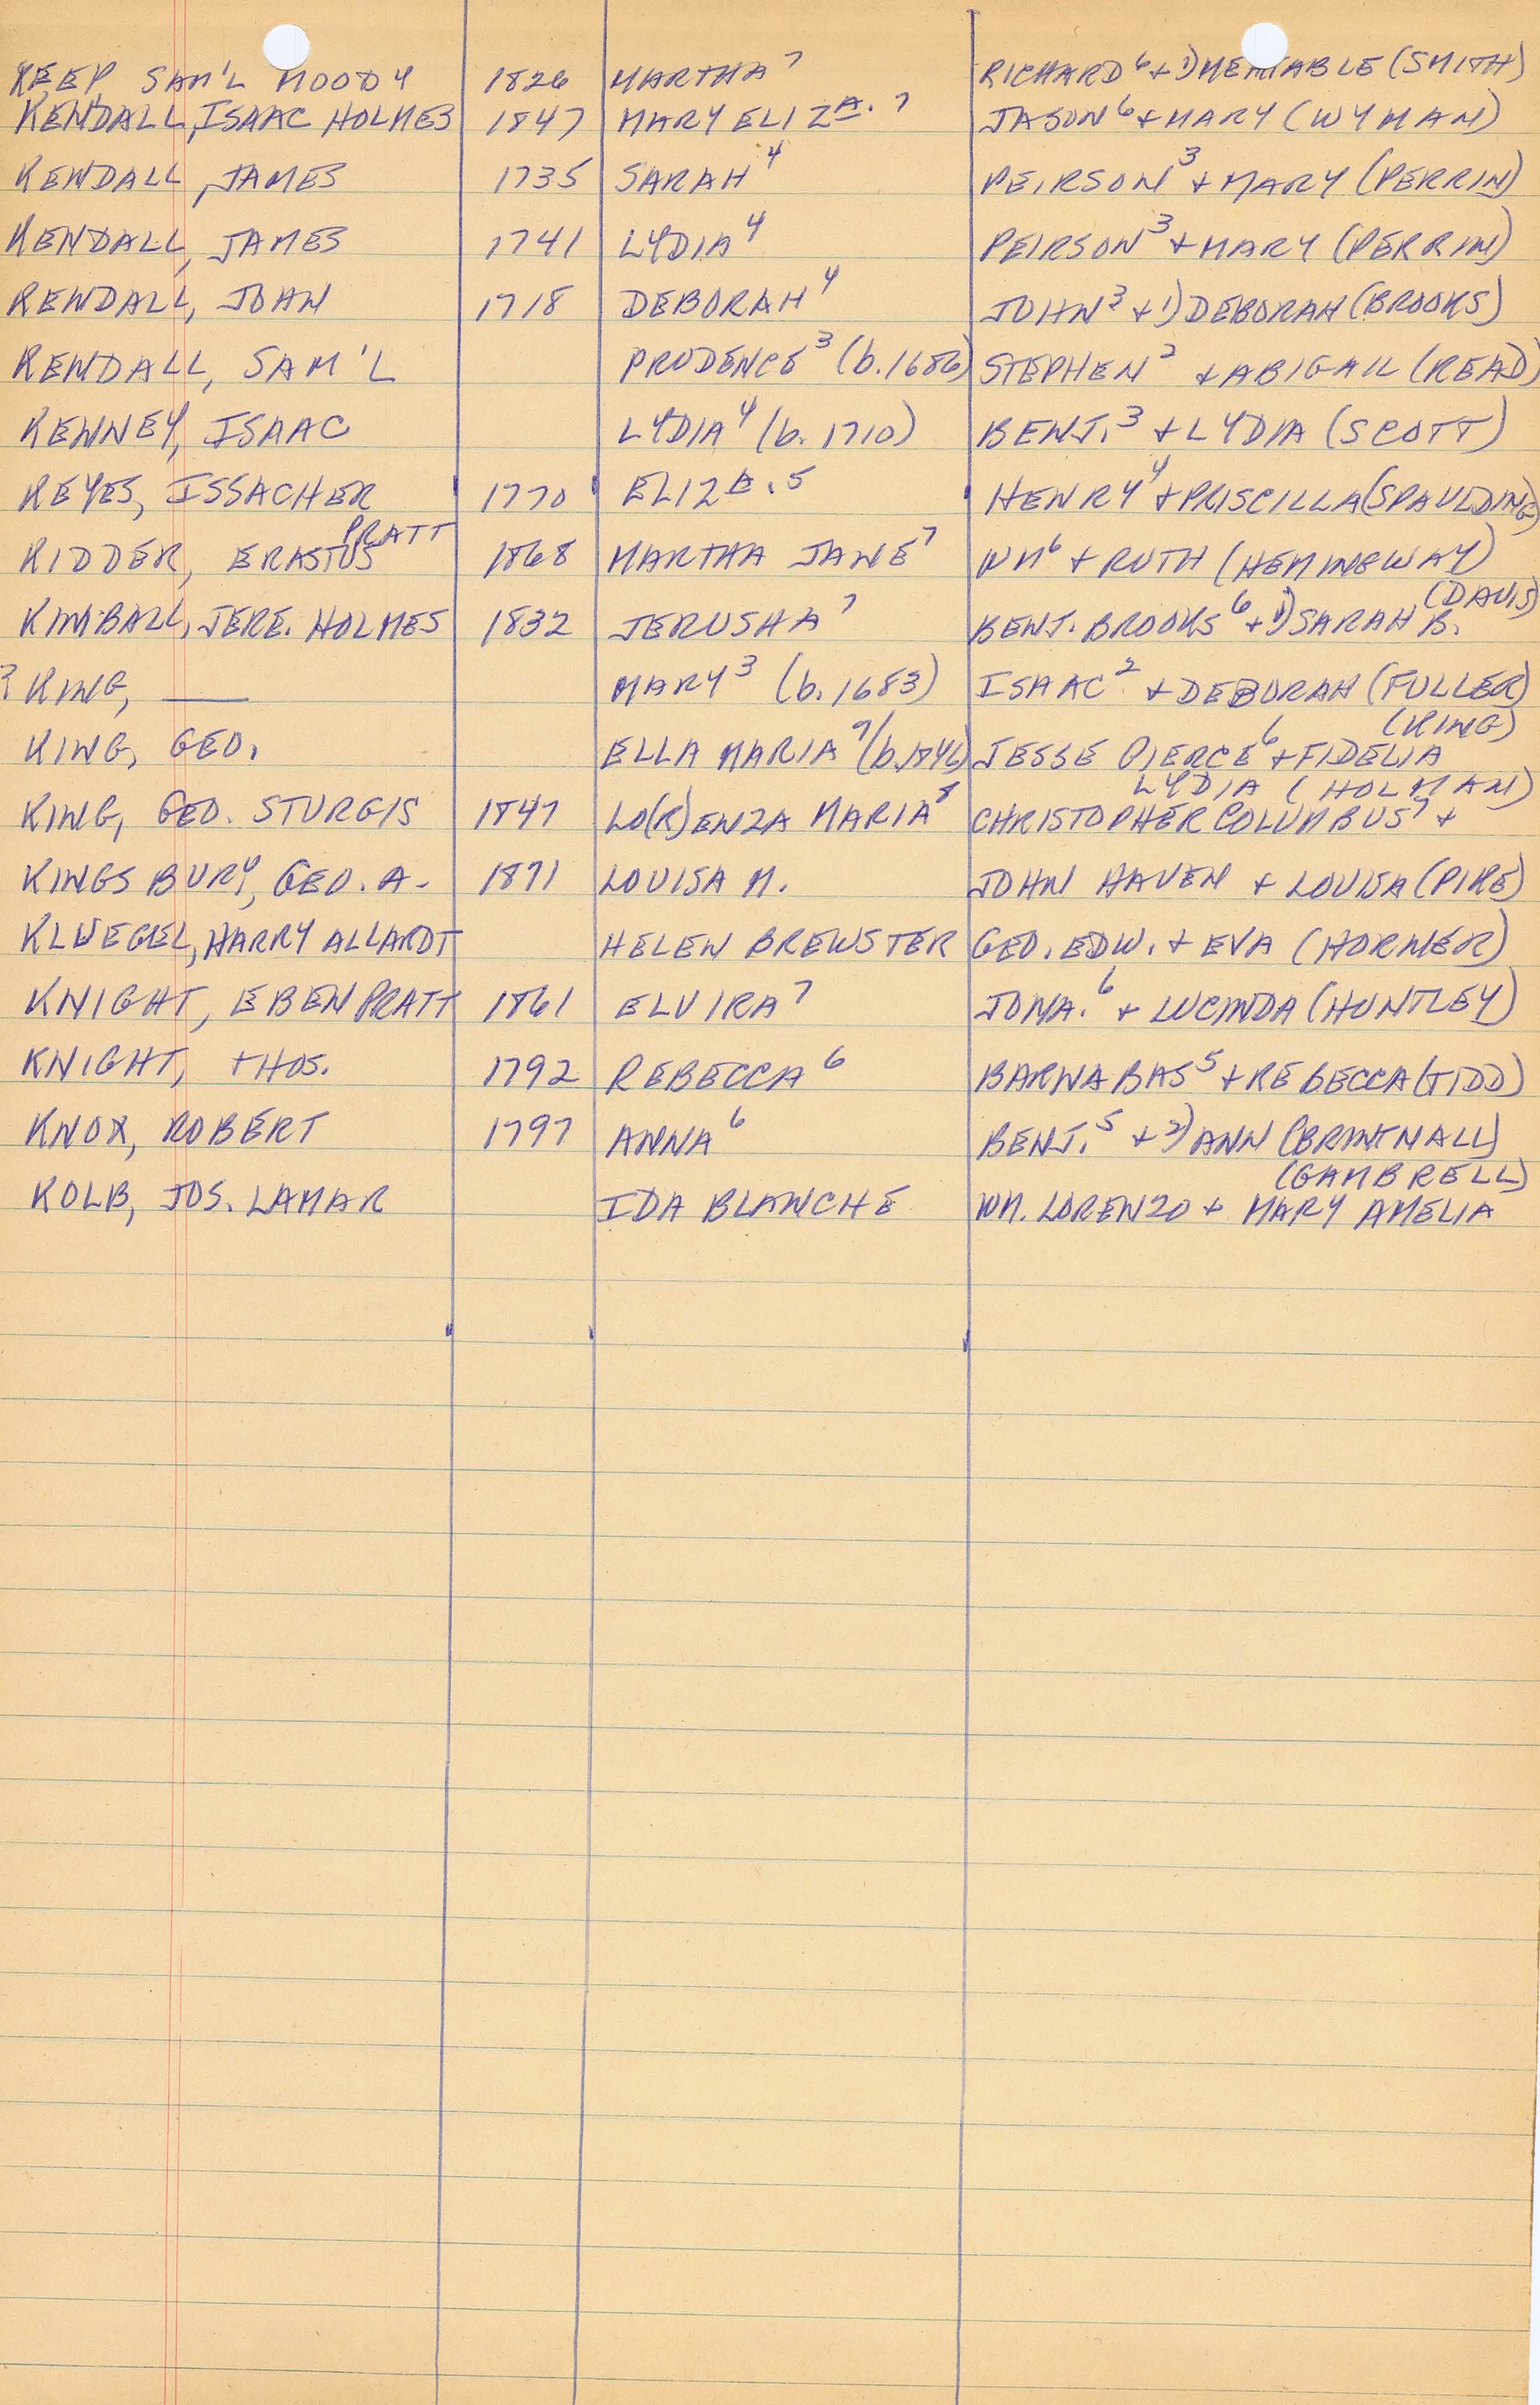 KEEP, SAM'L MOODY 1826 MARTHA⁷ RICHARD⁶ + 1) MEHITABLE (SMITH)
KENDALL, ISAAC HOLMES 1847 MARY ELIZA. ⁷ JASON⁶ + MARY (WYMAN)
KENDALL, JAMES 1735 SARAH⁴ PEIRSON³ + MARY (PERRIN)
KENDALL, JAMES 1741 LYDIA⁴ PEIRSON³ + MARY (PERRIN)
KENDALL, JOHN 1718 DEBORAH⁴ JOHN³ + 1) DEBORAH (BROOKS)
KENDALL, SAM'L PRUDENCE³ (b. 1686) STEPHEN² + ABIGAIL (READ)
KENNEY, ISAAC LYDIA⁴ (b. 1710) BENJ.³ + LYDIA (SCOTT)
KEYES, ISSACHER 1770 ELIZA.⁵ HENRY⁴ + PRISCILLA (SPAULDING)
KIDDER, ERASTUS PRATT 1868 MARTHA JANE⁷ WM⁶ + RUTH (HEMINGWAY)
KIMBALL, JERE. HOLMES 1832 JERUSHA⁷ BENJ. BROOKS⁶ + 1) SARAH B. (DAVIS)
? KING, —— MARY³ (b. 1683) ISAAC² + DEBORAH (FULLER)
KING, GEO. ELLA MARIA⁷ (b. 1846) JESSE PIERCE⁶ + FIDELIA (KING)
KING, GEO. STURGIS 1847 LO(R)ENZA MARIA⁸ CHRISTOPHER COLUMBUS⁷ + LYDIA (HOLMAN)
KINGSBURY, GEO. A. 1871 LOUISA M. JOHN HAVEN + LOUISA (PIKE)
KLUEGEL, HARRY ALLARDT HELEN BREWSTER GEO. EDW. + EVA (HORNER)
KNIGHT, EBEN PRATT 1861 ELVIRA⁷ JONA.⁶ + LUCINDA (HUNTLEY)
KNIGHT, THOS. 1792 REBECCA⁶ BARNABAS⁵ + REBECCA (TIDD)
KNOX, ROBERT 1797 ANNA⁶ BENJ.⁵ + 2) ANN (BRINTNALL)
KOLB, JOS. LAMAR IDA BLANCHE WM. LORENZO + MARY AMELIA (GAMBRELL)